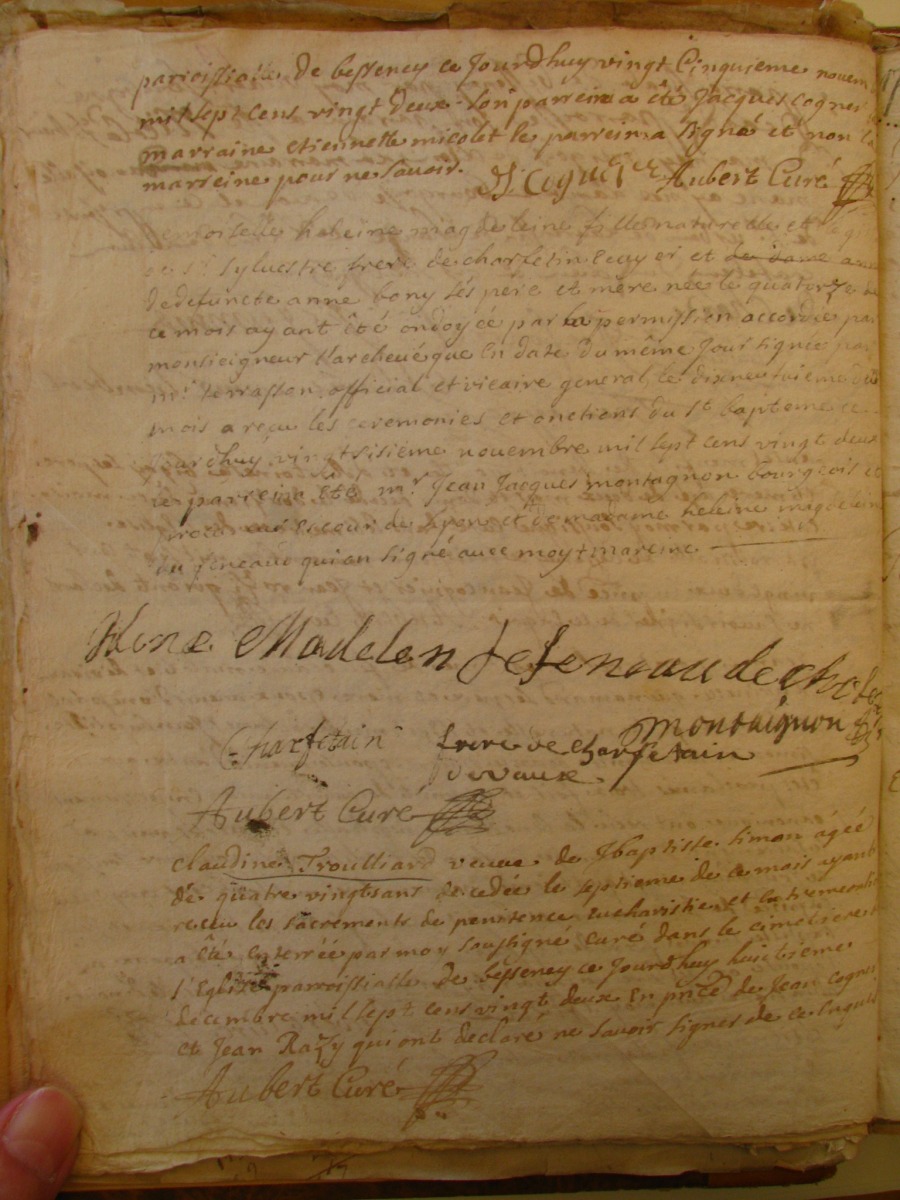 paroissialle de besseney ce Jourdhuy vingt Cinquieme novem
mil sept cens vingt deux son parrein a été Jacques Cognet
marraine etiennette micolet le parrein a signé et non la
marreine pour ne savoir.
J. Cognet Aubert Curé
emoiselle heleine magdeleine fille naturelle et
et Sr Sylvestre frere de charfetin Ecuyer et de dame anne
de defuncte anne bony ses pere et mère née le quatorze de
ce mois ayant été ondoyée par la permission accordée par
monseigneur Larchevéque En date du même Jour signée par
mr. terrasson official et vicaire general, le dixneuvieme du
mois a reçu les ceremonies et onctions du St. bapteme ce
jourdhuy vingtsisième novembre mil sept cens vingt deux
le parrein a été mr. Jean Jacques montagnon bourgeois et
procureur es cour de Lyon et de madame heleine magdelein
du feneaud qui on signé avec moy et mareine
Madelen de feneau de
Montaignon
Charfetain frere de charfetain
devaux
Aubert Curé
Claudine Troulliard veuve de Jbaptiste simon âgée
dé quatre vingtsans decedée le septieme de ce mois ayant
receu les sacrements de penitence eucharistie et extremeonct
a été enterrée par moy soussigné curé dans le cimetiere de
l'Eglise parroissialle de besseney ce Jourdhuy huitieme
decembre mil sept cens vingt deux En price de Jean Cognet
et Jean Razy qui ont declaré ne savoir signer de ce Enquis
Aubert Curé